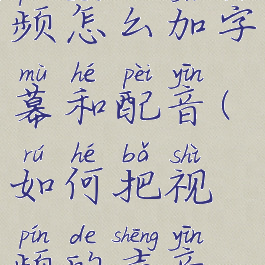 频怎么加字
mù hé pèi yīn
幕和配音(
rú hé bǎ shì
如何把视
pín de shēng yīn
频的声音